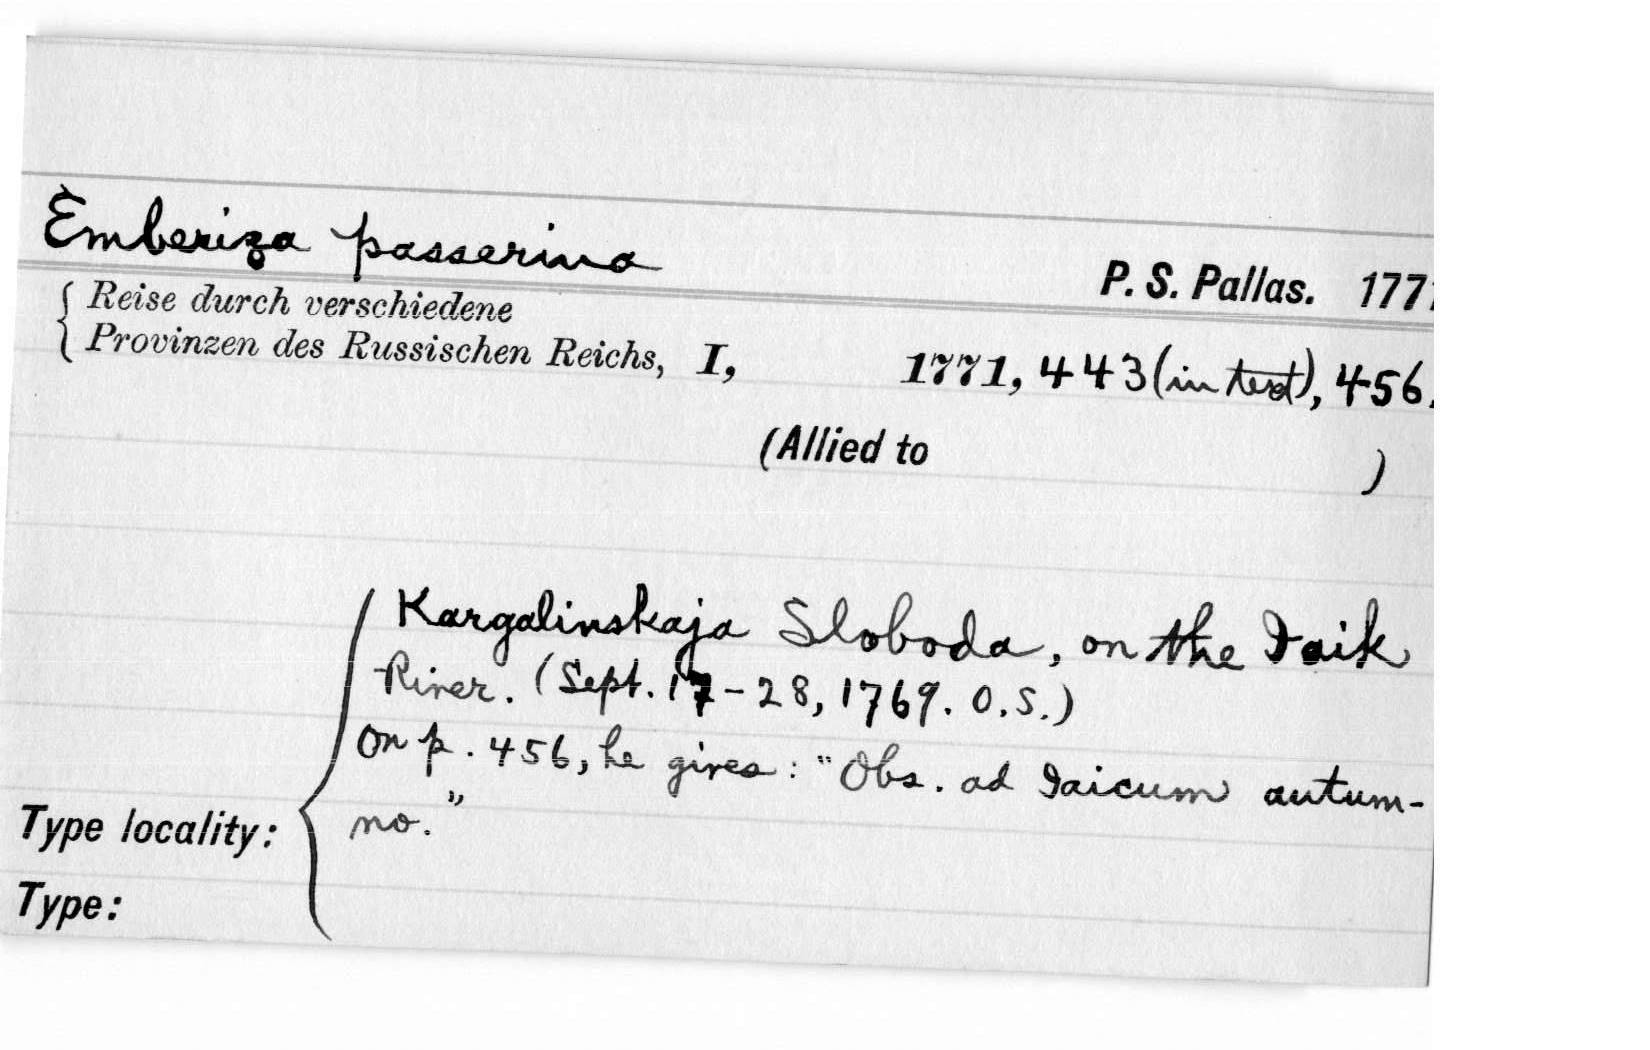 Emberiza passerina
P. S. Pallas. 1771
Reise durch verschiedene
Provinzen des Russischen Reichs, I, 1771, 443 (in text), 456.
(Allied to )
Kargalinskaja Sloboda, on the Iaik
River. (Sept. 17-28, 1769. O.S.)
On p. 456, he gives: "Obs. ad Iaicum autum-
no."
Type locality:
Type: